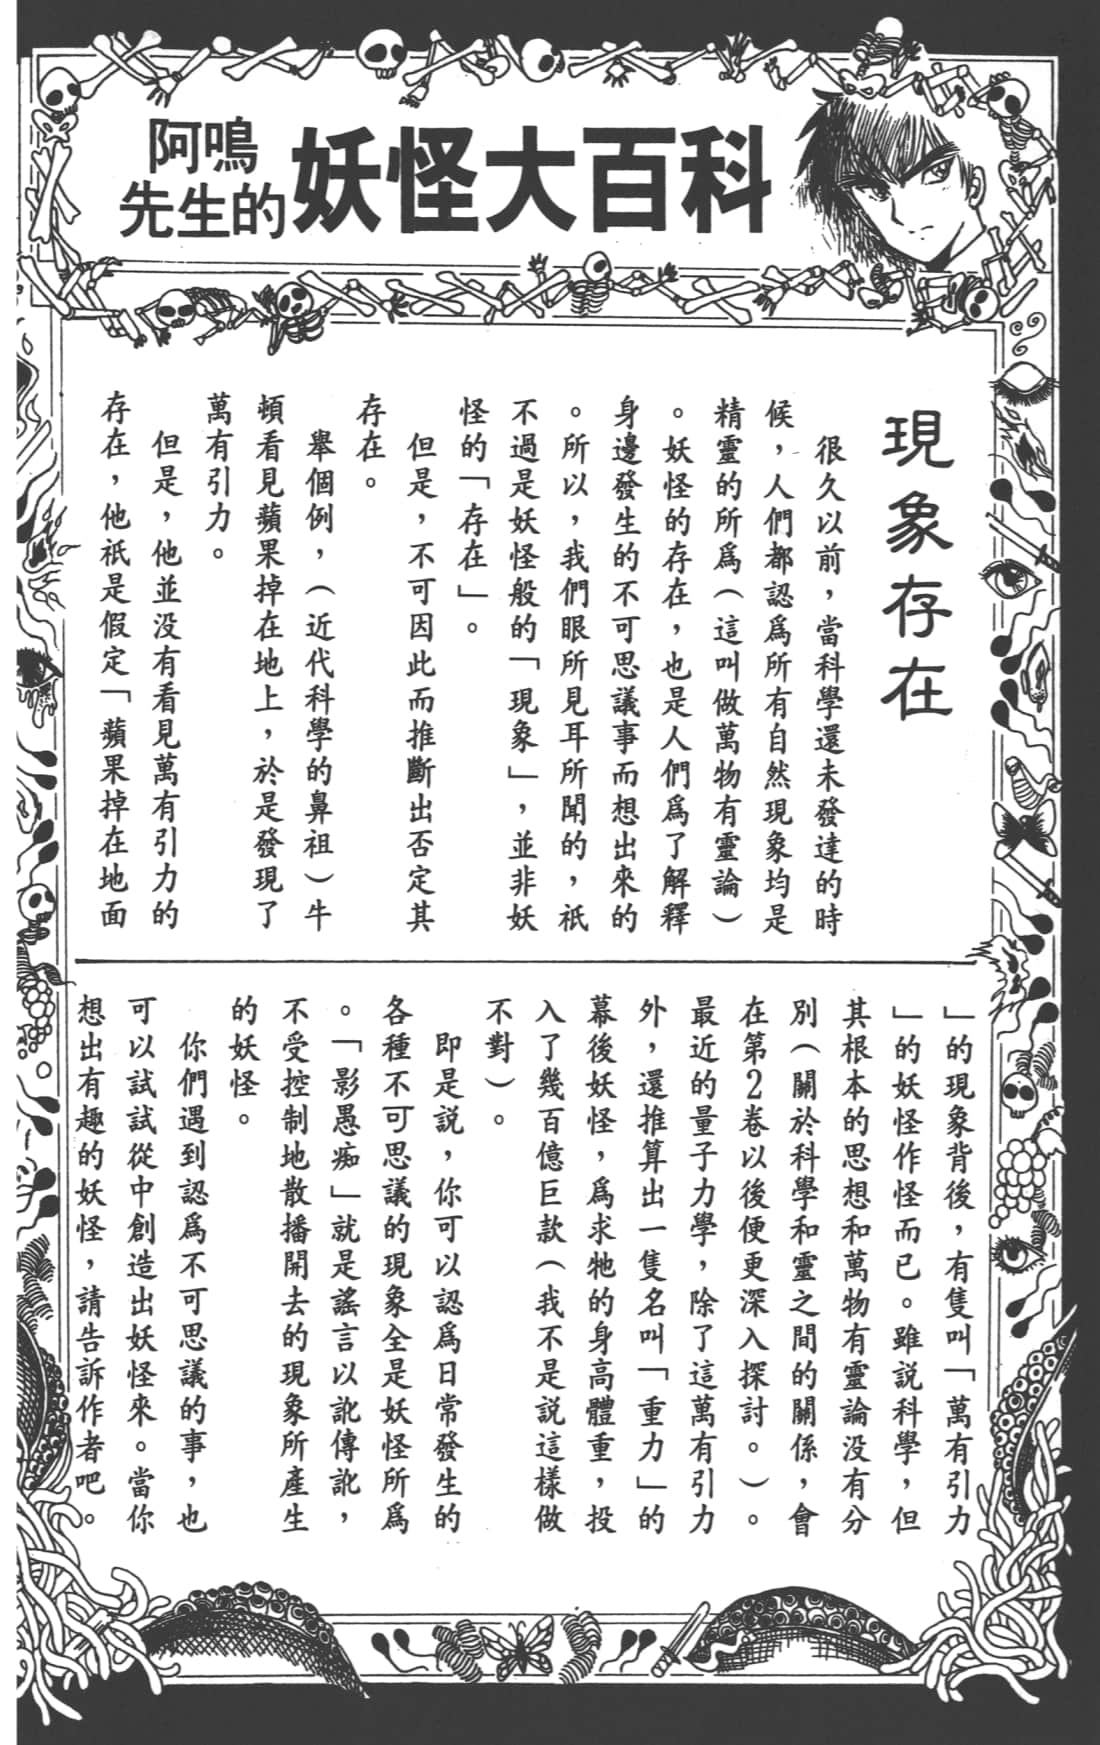 阿鳴
先生的
妖怪大百科
現象存在
很久以前，當科學還未發達的時
候，人們都認爲所有自然現象均是
精靈的所爲（這叫做萬物有靈論）
。妖怪的存在，也是人們爲了解釋
身邊發生的不可思議事而想出來的
。所以，我們眼所見耳所聞的，祇
不過是妖怪般的「現象」，並非妖
怪的「存在」。
但是，不可因此而推斷出否定其
存在。
舉個例，（近代科學的鼻祖）牛
頓看見蘋果掉在地上，於是發現了
萬有引力。
但是，他並没有看見萬有引力的
存在，他祇是假定「蘋果掉在地面
」的現象背後，有隻叫「萬有引力
」的妖怪作怪而已。雖説科學，但
其根本的思想和萬物有靈論没有分
別（關於科學和靈之間的關係，會
在第2卷以後便更深入探討。）。
最近的量子力學，除了這萬有引力
外，還推算出一隻名叫「重力」的
幕後妖怪，爲求牠的身高體重，投
入了幾百億巨款（我不是説這樣做
不對）。
即是説，你可以認爲日常發生的
各種不可思議的現象全是妖怪所爲
。「影愚痴」就是謠言以訛傳訛，
不受控制地散播開去的現象所產生
的妖怪。
你們遇到認爲不可思議的事，也
可以試試從中創造出妖怪來。當你
想出有趣的妖怪，請告訴作者吧。